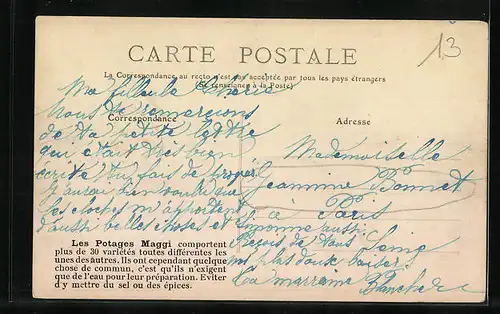 13
CARTE POSTALE
La Correspondance au recto n'est pas acceptée par tous les pays étrangers
(Se renseigner à la Poste)
Ma filleule chérie
Nous te remercions
Correspondance
Adresse
de ta petite lettre
qui était très bien
écrite tu fais de progrès
J'aurai bien voulu que
les cloches m'apportent
d'aussi belles choses et
Mademoiselle
Jeannine Bonnet
à Paris
Suzanne aussi
Reçois de tous
mes plus doux baisers
Ta marraine Blanche
Les Potages Maggi comportent
plus de 30 variétés toutes différentes les
unes des autres. Ils ont cependant quelque
chose de commun, c'est qu'ils n'exigent
que de l'eau pour leur préparation. Eviter
d'y mettre du sel ou des épices.